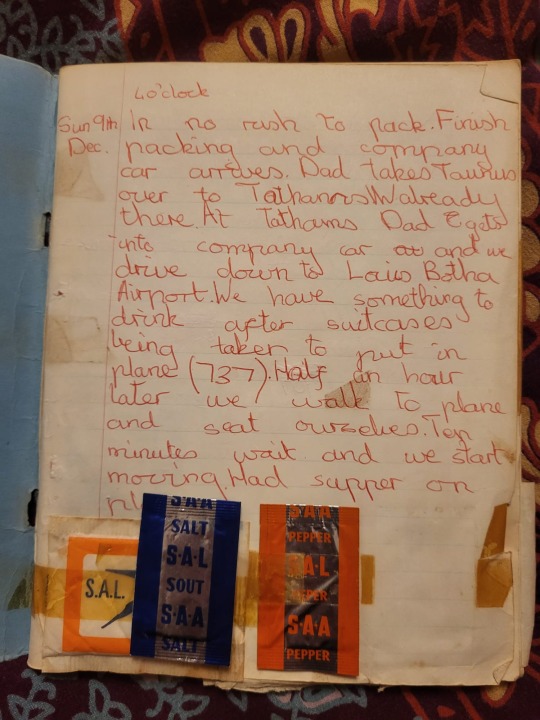 4o'clock
Sun 9th
Dec.
In no rush to pack. Finish
packing and company
car arrives. Dad takes Taurus
over to Tathams VW already
there. At Tathams Dad gets
into company car and we
drive down to Louis Botha
Airport. We have something to
drink after suitcases
being taken to put in
plane (737). Half an hour
later we walk to plane
and seat ourselves. Ten
minutes wait and we start
moving. Had supper on
pl
S.A.L.
S.A.A
SALT
S.A.L
SOUT
S.A.A
SALT
S.A.A
PEPPER
S.A.L
PEPER
S.A.A
PEPPER